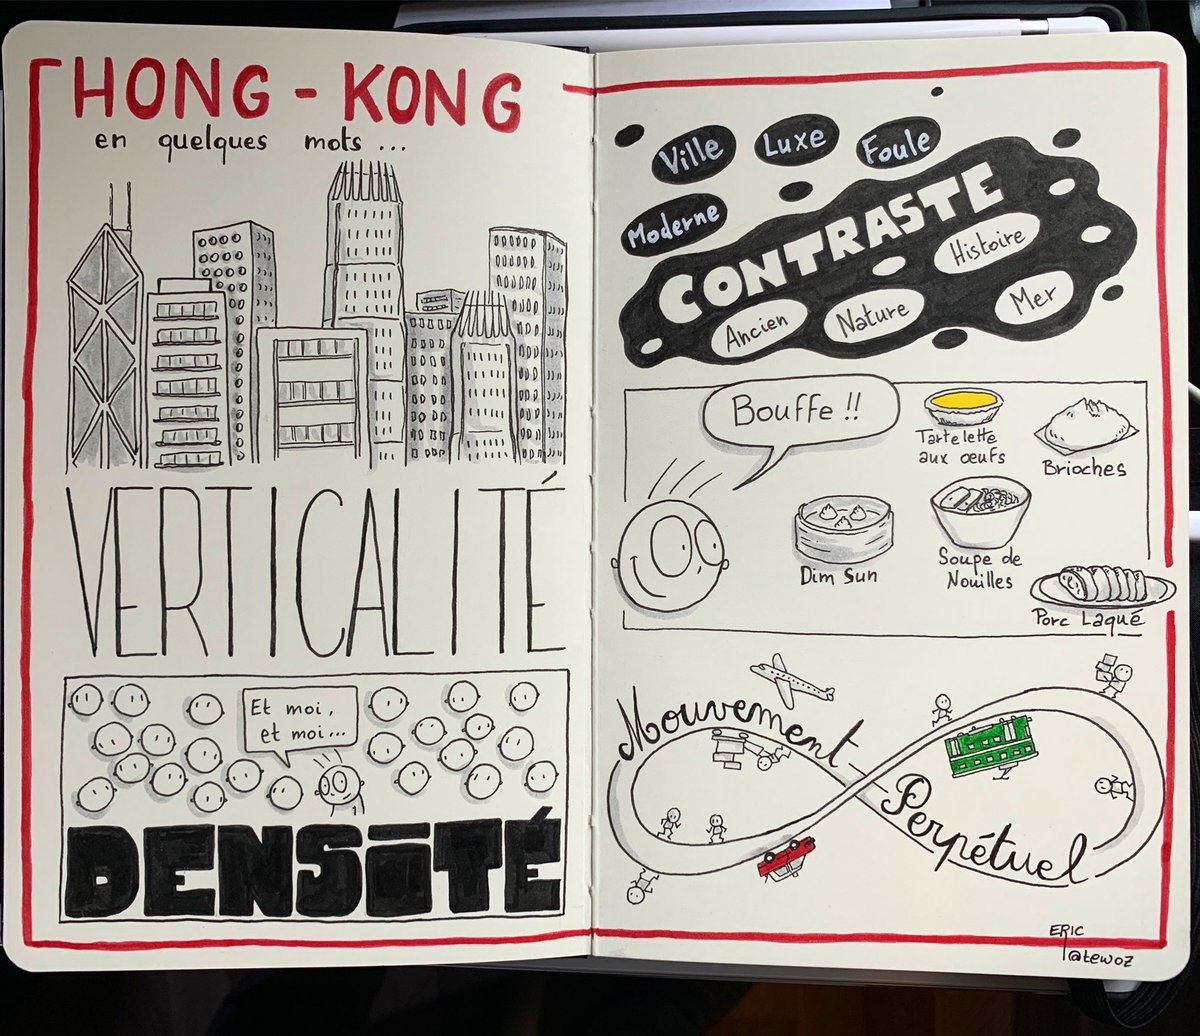 HONG - KONG
en quelques mots ...
VERTICALITÉ
Et moi,
et moi...
DENSITÉ
Ville
Luxe
Foule
Moderne
CONTRASTE
Histoire
Ancien
Nature
Mer
Bouffe !!
Tartelette
aux œufs
Brioches
Dim Sun
Soupe de
Nouilles
Porc Laqué
Mouvement
Perpétuel
ERIC
@tewoz